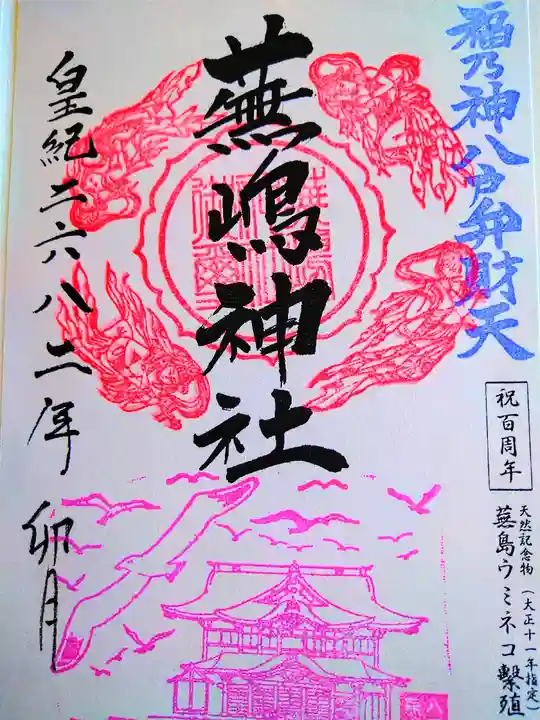 福乃神八戸弁財天
祝百周年
天然記念物(大正十一年指定)
蕪島ウミネコ繫殖
蕪嶋神社
皇紀二六八二年 卯月